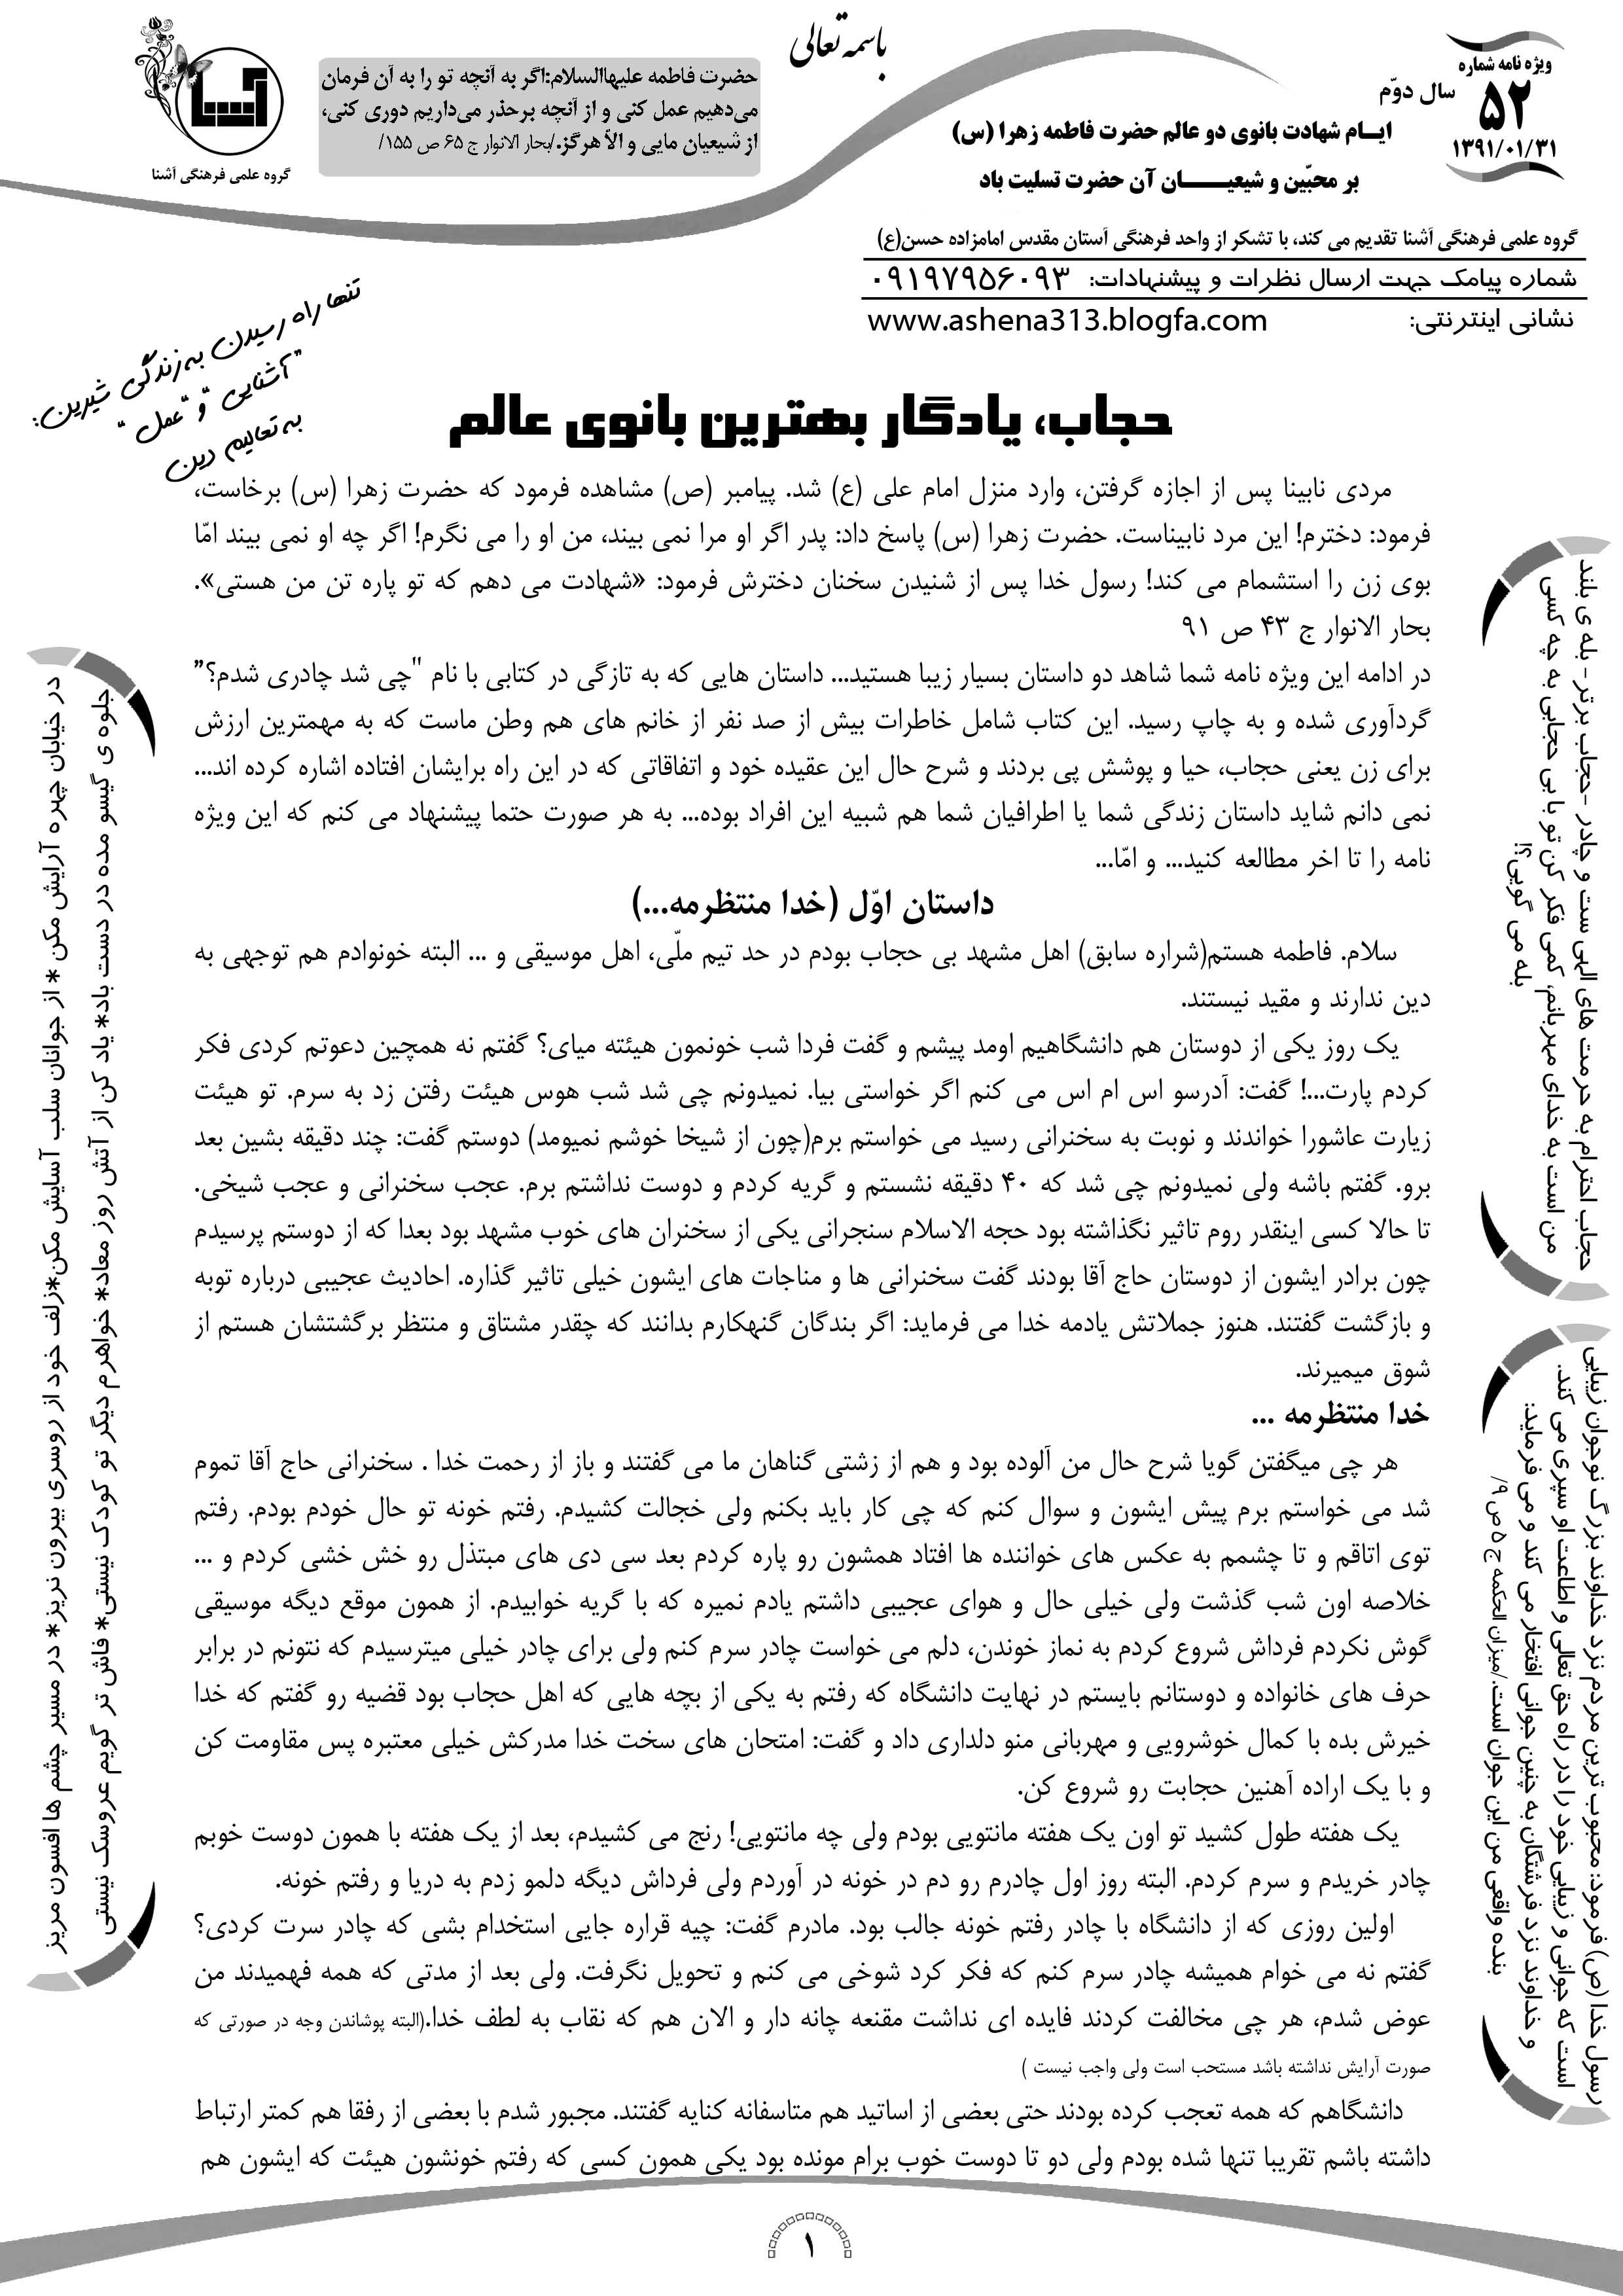 باسمه تعالی
ویژه نامه شماره
۵۲
سال دوّم
۱۳۹۱/۰۱/۳۱
ایـام شهادت بانوی دو عالم حضرت فاطمه زهرا (س)
بر محبّین و شیعیــــــان آن حضرت تسلیت باد
حضرت فاطمه علیهاالسلام:اگر به آنچه تو را به آن فرمان
می‌دهیم عمل کنی و از آنچه برحذر می‌داریم دوری کنی،
از شیعیان مایی و الّا هرگز./بحار الانوار ج ۶۵ ص ۱۵۵/
آشنا
گروه علمی فرهنگی آشنا
گروه علمی فرهنگی آشنا تقدیم می کند، با تشکر از واحد فرهنگی آستان مقدس امامزاده حسن(ع)
شماره پیامک جهت ارسال نظرات و پیشنهادات: ۰۹۱۹۷۹۵۶۰۹۳
نشانی اینترنتی: www.ashena313.blogfa.com
تنها راه رسیدن به زندگی شیرین:
"آشنایی" و "عمل"
به تعالیم دین
حجاب، یادگار بهترین بانوی عالم
مردی نابینا پس از اجازه گرفتن، وارد منزل امام علی (ع) شد. پیامبر (ص) مشاهده فرمود که حضرت زهرا (س) برخاست،
فرمود: دخترم! این مرد نابیناست. حضرت زهرا (س) پاسخ داد: پدر اگر او مرا نمی بیند، من او را می نگرم! اگر چه او نمی بیند امّا
بوی زن را استشمام می کند! رسول خدا پس از شنیدن سخنان دخترش فرمود: «شهادت می دهم که تو پاره تن من هستی».
بحار الانوار ج ۴۳ ص ۹۱
در ادامه این ویژه نامه شما شاهد دو داستان بسیار زیبا هستید... داستان هایی که به تازگی در کتابی با نام "چی شد چادری شدم؟"
گردآوری شده و به چاپ رسید. این کتاب شامل خاطرات بیش از صد نفر از خانم های هم وطن ماست که به مهمترین ارزش
برای زن یعنی حجاب، حیا و پوشش پی بردند و شرح حال این عقیده خود و اتفاقاتی که در این راه برایشان افتاده اشاره کرده اند...
نمی دانم شاید داستان زندگی شما یا اطرافیان شما هم شبیه این افراد بوده... به هر صورت حتما پیشنهاد می کنم که این ویژه
نامه را تا اخر مطالعه کنید... و امّا...
داستان اوّل (خدا منتظرمه...)
سلام. فاطمه هستم(شراره سابق) اهل مشهد بی حجاب بودم در حد تیم ملّی، اهل موسیقی و ... البته خونوادم هم توجهی به
دین ندارند و مقید نیستند.
یک روز یکی از دوستان هم دانشگاهیم اومد پیشم و گفت فردا شب خونمون هیئته میای؟ گفتم نه همچین دعوتم کردی فکر
کردم پارت...! گفت: آدرسو اس ام اس می کنم اگر خواستی بیا. نمیدونم چی شد شب هوس هیئت رفتن زد به سرم. تو هیئت
زیارت عاشورا خواندند و نوبت به سخنرانی رسید می خواستم برم(چون از شیخا خوشم نمیومد) دوستم گفت: چند دقیقه بشین بعد
برو. گفتم باشه ولی نمیدونم چی شد که ۴۰ دقیقه نشستم و گریه کردم و دوست نداشتم برم. عجب سخنرانی و عجب شیخی.
تا حالا کسی اینقدر روم تاثیر نگذاشته بود حجه الاسلام سنجرانی یکی از سخنران های خوب مشهد بود بعدا که از دوستم پرسیدم
چون برادر ایشون از دوستان حاج آقا بودند گفت سخنرانی ها و مناجات های ایشون خیلی تاثیر گذاره. احادیث عجیبی درباره توبه
و بازگشت گفتند. هنوز جملاتش یادمه خدا می فرماید: اگر بندگان گنهکارم بدانند که چقدر مشتاق و منتظر برگشتشان هستم از
شوق میمیرند.
خدا منتظرمه ...
هر چی میگفتن گویا شرح حال من آلوده بود و هم از زشتی گناهان ما می گفتند و باز از رحمت خدا . سخنرانی حاج آقا تموم
شد می خواستم برم پیش ایشون و سوال کنم که چی کار باید بکنم ولی خجالت کشیدم. رفتم خونه تو حال خودم بودم. رفتم
توی اتاقم و تا چشمم به عکس های خواننده ها افتاد همشون رو پاره کردم بعد سی دی های مبتذل رو خش خشی کردم و ...
خلاصه اون شب گذشت ولی خیلی حال و هوای عجیبی داشتم یادم نمیره که با گریه خوابیدم. از همون موقع دیگه موسیقی
گوش نکردم فرداش شروع کردم به نماز خوندن، دلم می خواست چادر سرم کنم ولی برای چادر خیلی میترسیدم که نتونم در برابر
حرف های خانواده و دوستانم بایستم در نهایت دانشگاه که رفتم به یکی از بچه هایی که اهل حجاب بود قضیه رو گفتم که خدا
خیرش بده با کمال خوشرویی و مهربانی منو دلداری داد و گفت: امتحان های سخت خدا مدرکش خیلی معتبره پس مقاومت کن
و با یک اراده آهنین حجابت رو شروع کن.
یک هفته طول کشید تو اون یک هفته مانتویی بودم ولی چه مانتویی! رنج می کشیدم، بعد از یک هفته با همون دوست خوبم
چادر خریدم و سرم کردم. البته روز اول چادرم رو دم در خونه در آوردم ولی فرداش دیگه دلمو زدم به دریا و رفتم خونه.
اولین روزی که از دانشگاه با چادر رفتم خونه جالب بود. مادرم گفت: چیه قراره جایی استخدام بشی که چادر سرت کردی؟
گفتم نه می خوام همیشه چادر سرم کنم که فکر کرد شوخی می کنم و تحویل نگرفت. ولی بعد از مدتی که همه فهمیدند من
عوض شدم، هر چی مخالفت کردند فایده ای نداشت مقنعه چانه دار و الان هم که نقاب به لطف خدا.(البته پوشاندن وجه در صورتی که
صورت آرایش نداشته باشد مستحب است ولی واجب نیست )
دانشگاهم که همه تعجب کرده بودند حتی بعضی از اساتید هم متاسفانه کنایه گفتند. مجبور شدم با بعضی از رفقا هم کمتر ارتباط
داشته باشم تقریبا تنها شده بودم ولی دو تا دوست خوب برام مونده بود یکی همون کسی که رفتم خونشون هیئت که ایشون هم
حجاب احترام به حرمت های الهی ست و چادر -حجاب برتر- بله ی بلند
من است به خدای مهربانم، کمی فکر کن تو با بی حجابی به چه کسی
بله می گویی؟!
رسول خدا (ص) فرمود: محبوب ترین مردم نزد خداوند بزرگ نوجوان زیبایی
است که جوانی و زیبایی خود را در راه حق تعالی و اطاعت او سپری می کند.
و خداوند نزد فرشتگان به چنین جوانی افتخار می کند و می فرماید:
بنده واقعی من این جوان است./میزان الحکمه ج ۵ ص ۹/
در خیابان چهره آرایش مکن * از جوانان سلب آسایش مکن*زلف خود از روسری بیرون نریز* در مسیر چشم ها افسون مریز
جلوه ی گیسو مده در دست باد* یاد کن از آتش روز معاد* خواهرم دیگر تو کودک نیستی* فاش تر گویم عروسک نیستی
۱